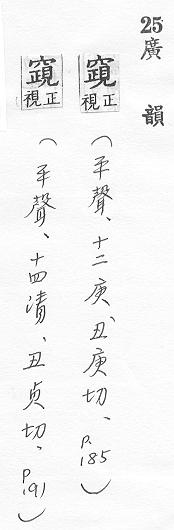 25 廣韻
竀 正視 (平聲、十二庚、丑庚切、p.185)
竀 正視 (平聲、十四清、丑貞切、p.191)